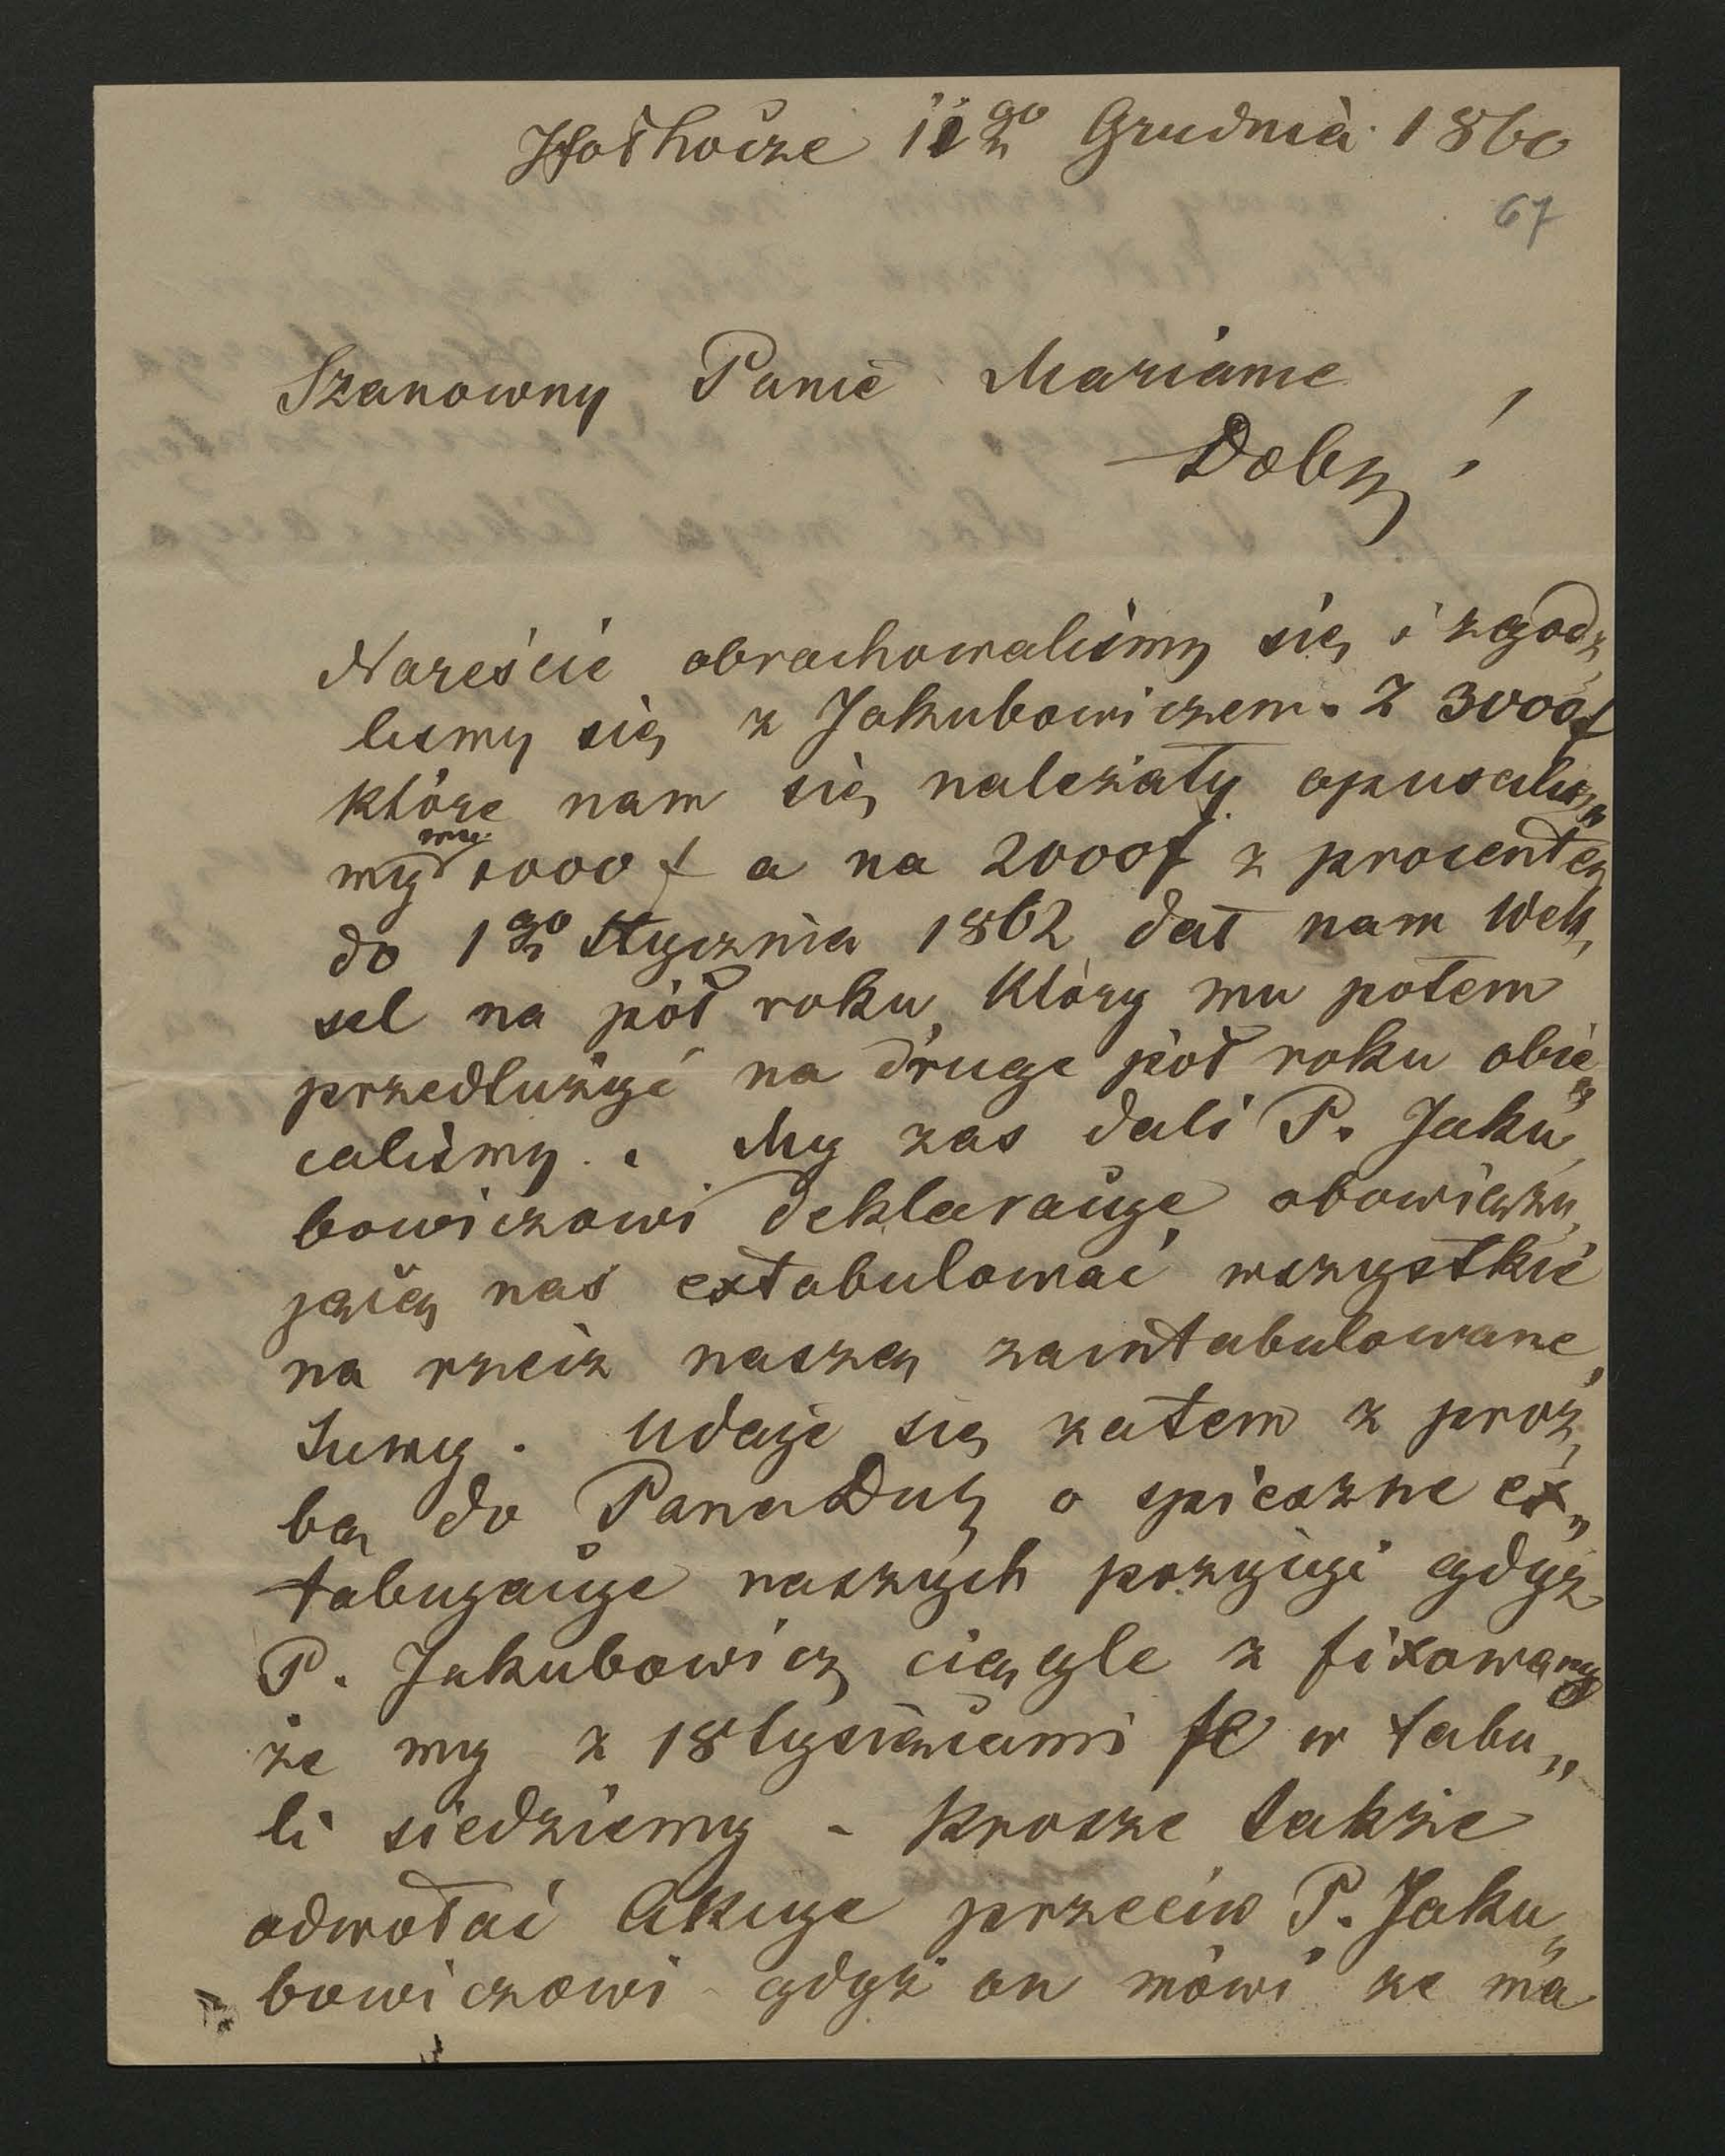 Hołhocze 11go Grudnia 1860
67
Szanowny Panie Marianie
Dobr !
Nareście obrachowaliśmy się i zgodz,
liśmy się z Jakubowiczem. Z 3000f
które nam się należały opuscilis„
my mu 1000 f a na 2000f z procentem
do 1go Stycznia 1862 dał nam Wek,
sel na pół roku, który mu potem
przedlużyć na druge pół roku obie„
caliśmy. My zas dali P. Jaku,
bowiczowi deklaracije obowiązu,
jącą nas extabulować wszystkie
na rzecz naszą zaintabulowane,
Sumy. Udaje się zatem z proź,
bą do Pana Dob o spieszne ex„
tabugacije naszych pozycyi gdyz
P. Jakubowicz ciągle z fixowany
że my z 18 tysiącami fl w tabu„
li siedziemy - Prosze także
odwołać Akcyje przeciw P. Jaku„
bowiczowi gdyż on mówi ze ma